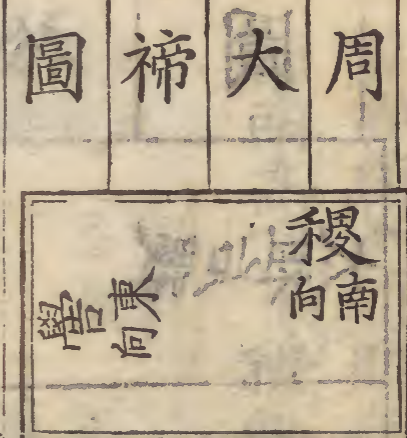 周大禘圖
稷
南向
嚳
東向